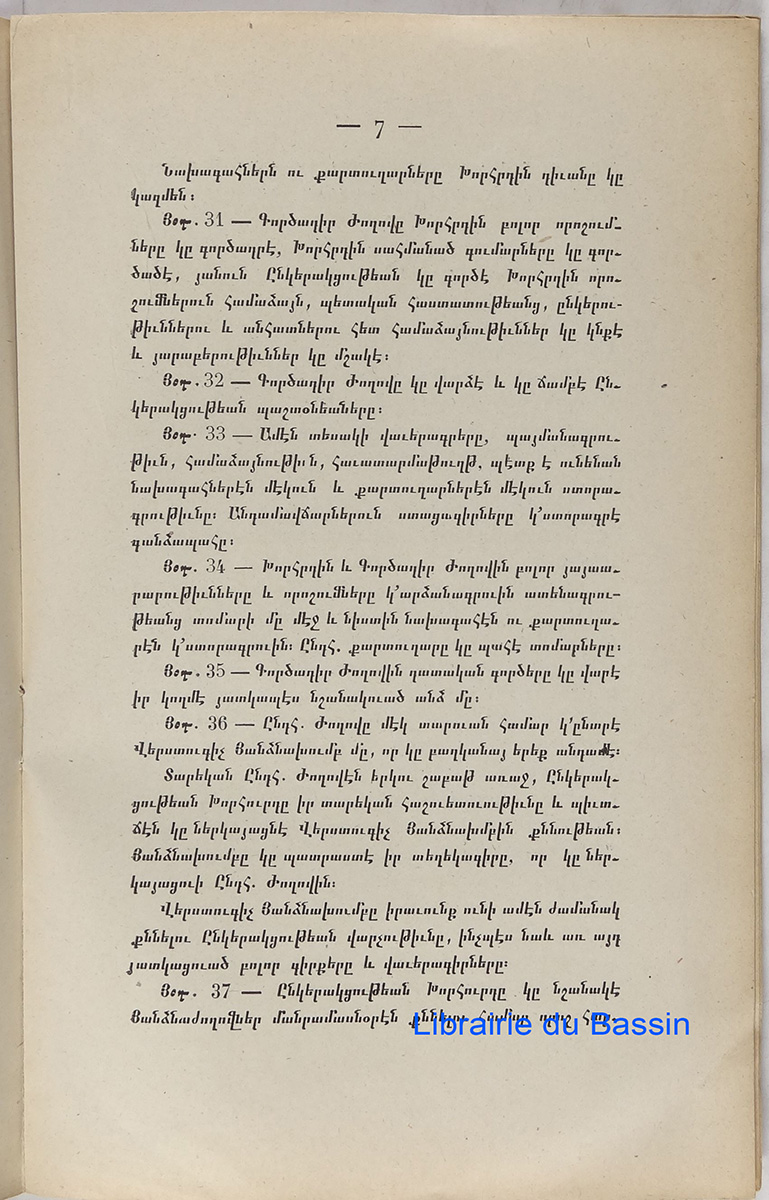 — 7 —
Նախագահներն ու քարտուղարները Խորհրդին դիւանը կը
կազմեն։
Յօդ. 31 — Գործադիր Ժողովը Խորհրդին բոլոր որոշում-
ները կը գործադրէ, Խորհրդին սահմանած գումարները կը գոր-
ծածէ, յանուն Ընկերակցութեան կը գործէ Խորհրդին որո-
շումներուն համաձայն, պետական հաստատութեանց, ընկերու-
թիւններու և անհատներու հետ համաձայնութիւններ կը կնքէ
և յարաբերութիւններ կը մշակէ։
Յօդ. 32 — Գործադիր Ժողովը կը վարձէ և կը ճամբէ Ըն-
կերակցութեան պաշտօնեաները։
Յօդ. 33 — Ամէն տեսակի վաւերագրերը, պայմանագրու-
թիւն, համաձայնութիւն, հաւատարմաթուղթ, պէտք է ունենան
նախագահներէն մէկուն և քարտուղարներէն մէկուն ստորա-
գրութիւնը։ Անդամավճարներուն ստացագիրները կ՚ստորագրէ
գանձապահը։
Յօդ. 34 — Խորհրդին և Գործադիր Ժողովին բոլոր յայտա-
րարութիւնները և որոշումները կ՚արձանագրուին ատենագրու-
թեանց տոմարի մը մէջ և նիստին նախագահէն ու քարտուղա-
րէն կ՚ստորագրուին։ Ընդհ. քարտուղարը կը պահէ տոմարները։
Յօդ. 35 — Գործադիր Ժողովին դատական գործերը կը վարէ
իր կողմէ յատկապէս նշանակուած անձ մը։
Յօդ. 36 — Ընդհ. Ժողովը մէկ տարուան համար կ՚ընտրէ
Վերստուգիչ Յանձնախումբ մը, որ կը բաղկանայ երեք անդամէ։
Տարեկան Ընդհ. Ժողովէն երկու շաբաթ առաջ, Ընկերակ-
ցութեան Խորհուրդը իր տարեկան հաշուետուութիւնը և պիւտ-
ճէն կը ներկայացնէ Վերստուգիչ Յանձնախմբին քննութեան։
Յանձնախումբը կը պատրաստէ իր տեղեկագիրը, որ կը ներ-
կայացուի Ընդհ. Ժողովին։
Վերստուգիչ Յանձնախումբը իրաւունք ունի ամէն ժամանակ
քննելու Ընկերակցութեան վարչութիւնը, ինչպէս նաև առ այդ
յատկացուած բոլոր գիրքերը և վաւերագիրները։
Յօդ. 37 — Ընկերակցութեան Խորհուրդը կը նշանակէ
Յանձնաժողովներ մանրամասնօրէն քննելու համար
Librairie du Bassin